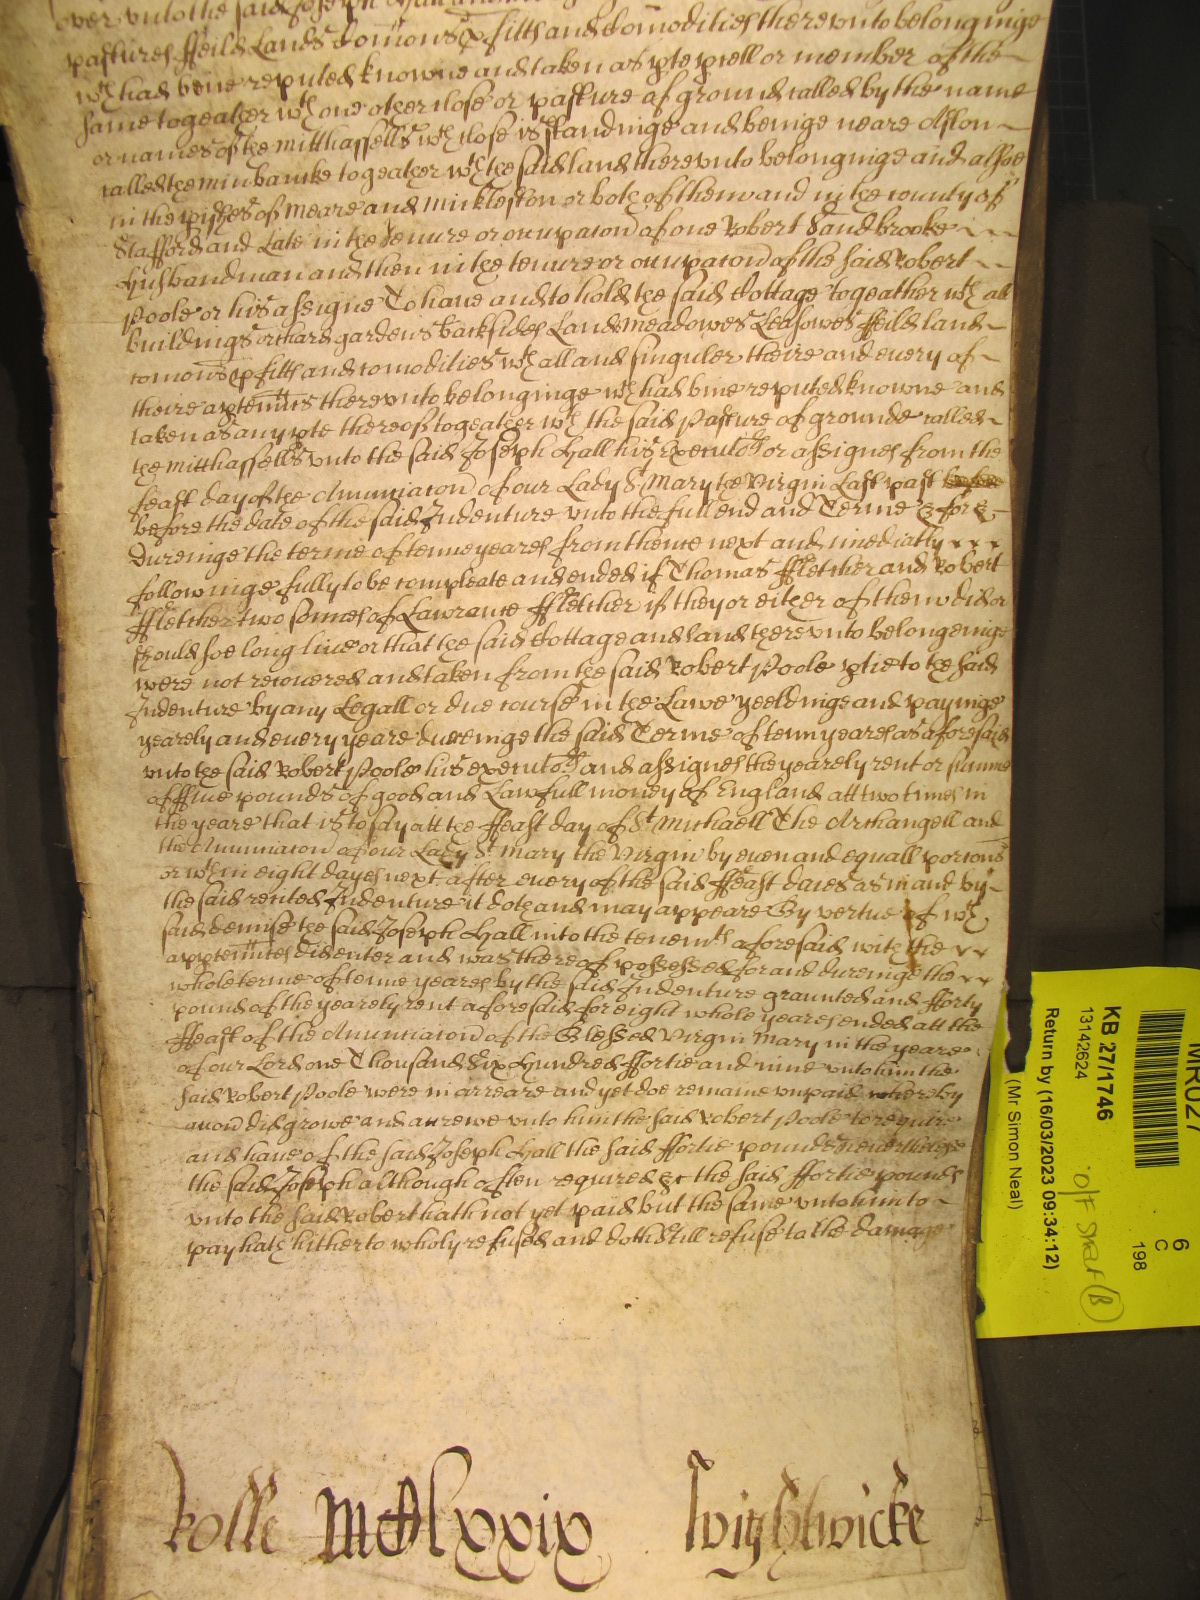 over vnto the said Joseph Hall
pastures ffeild Lands Comons pfitts and Comodities therevnto belonginge
wch had bene reputed knowne and taken as pte pcell or member of the
same togeather wth one other close or pasture of ground called by the name
or names of the Mitthassells wch close is standinge and beinge neare Aston
called the Minbancke togeather wth the said land therevnto belonginge and alsoe
in the pishes of Meare and Mickleston or both of them and in the county of
Stafford and Late in the Tenure or occupacon of one Robert Sandbrooke
husbandman and then in the tenure or occupacon of the said Robert
Poole or his assigne To have and to hold the said Cottage togeather wth all
buildings orchard gardens backsides Lands Meadowes Leasowes ffeild land
comons pfitts and comodities wth all and singuler theire and every of
theire aptenncs therevnto belonginge wch had bine reputed knowne and
taken as any pte thereof togeather wth the said Pasture of grounde called
the Mitthassells vnto the said Joseph Hall his Executors or assignes from the
feast day of the Annunciacon of our Lady St Mary the Virgin Last past
before the date of the said Indenture vnto the full end and Terme & for &
Dureinge the terme of tenne yeares from thence next and imediatly
followinge fully to be compleate and ended if Thomas ffletcher and Robert
ffletcher two sonnes of Lawrance ffletcher if they or either of them did or
should soe long live or that the said Cottage and land therevnto belongeinge
were not recovered and taken from the said Robert Poole ptie to the said
Indenture by any Legall or due course in the Lawe yeeldinge and payinge
yearely and every yeare dureinge the said Terme of tenn yeares as aforesaid
vnto the said Robert Poole his executors and assignes the yearely rent or summe
of ffive pounds of good and Lawfull money of England att two times in
the yeare that is to say att the ffeast day of St Michaell The Archangell and
the Annunciacon of our Lady St Mary the Virgin by even and equall porcons
or wthin eight dayes next after every of the said ffeast daies as in and by
the said recited Indenture it doth and may appeare By vertue of wch
said demise the said Joseph Hall into the tenemts aforesaid with the
apptenncs did enter and was thereof possessed for and dureinge the
whole terme of tenne yeares by the said Indenture graunted and fforty
pounds of the yearely rent aforesaid for eight whole yeares ended att the
ffeast of the Annunciacon of the Blessed Virgin Mary in the yeare
of our Lord one Thousand Six Hundred ffortie and nine vnto him the
said Robert Poole were in arreare and yet doe remaine vnpaid whereby
accon did growe and accrewe vnto him the said Robert Poole to require
and have of the said Joseph Hall the said ffortie pounds neverthelesse
the said Joseph although often required &c the said ffortie pounds
vnto the said Robert hath not yet paid but the same vnto him to
pay hath hitherto wholy refused and doth still refuse to the damage
Rolle MCClxxix Wightwicke
MR027
KB 27/1746
13142624
Return by (16/03/2023 09:34:12)
(Mr Simon Neal)
6
C
198
O/F Shelf (B)